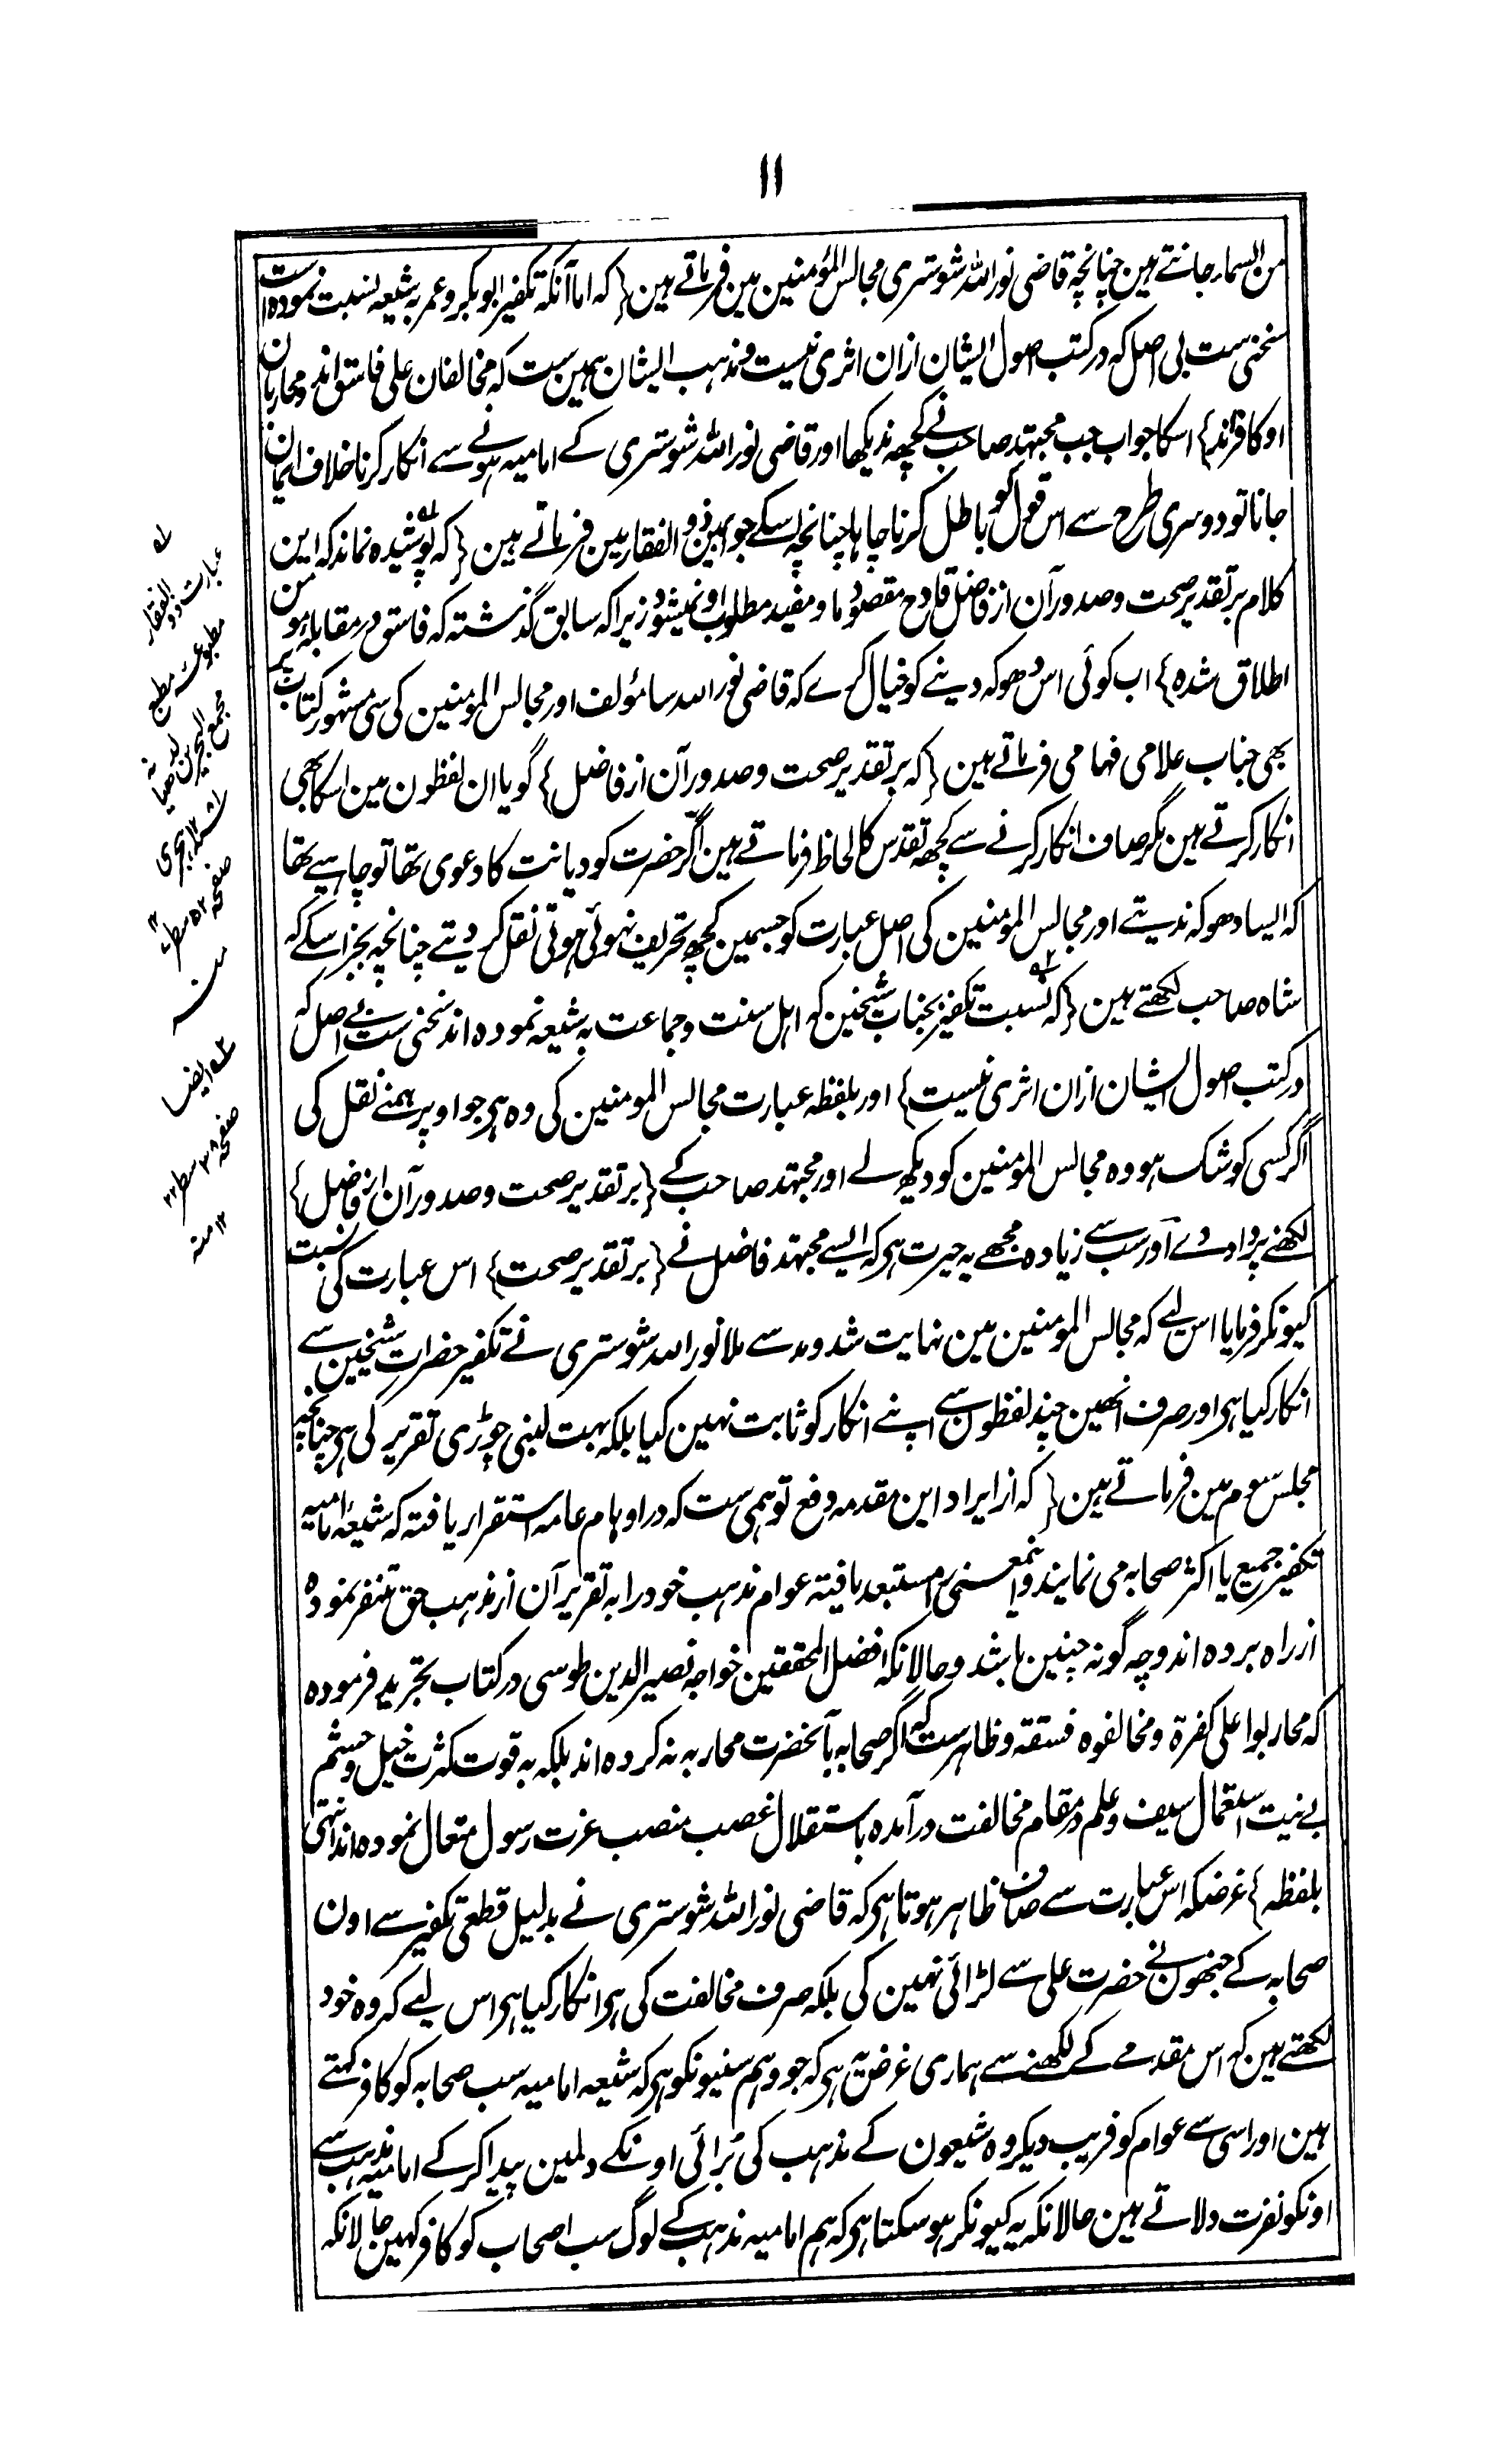 ۱۱
من السماء جانتے ہین چنانچہ قاضی نور اللہ شوستری مجالس المؤمنین مین فرماتے ہین {که اما آنکه تکفیر ابوبکر و عمر به شیعه نسبت نموده است
سخنی ست بی اصل که در کتب اصول ایشان ازان اثری نیست و مذہب ایشان ہمین ست که مخالفان علی فاسق اند و محاربان
او کافرند} اسکا جواب جب مجتہد صاحب نے کچھ ندیکھا اور قاضی نور اللہ شوستری کے امامیہ ہونے سے انکار کرنا خلاف ایمان
جانا تو دوسری طرح سے اس قول کو باطل کرنا چاہا چنانچہ اسکے جواب مین ذو الفقار مین فرماتے ہین {که پوشیده نماند که این
کلام بر تقدیر صحت و صدور آن از فاضل قادح مقصود ما و مفید مطلوب او نمیشود زیرا که سابق گذشته که فاسق در مقابله مومن
اطلاق شده} اب کوئی اس دھوکہ دینے کو خیال کرے کہ قاضی نور اللہ سا مؤلف اور مجالس المومنین کی سی مشہور کتاب پر
بھی جناب علامی فہامی فرماتے ہین {که بر تقدیر صحت و صدور آن از فاضل} گویا ان لفظون مین اسکا بھی
انکار کرتے ہین مگر صاف انکار کرنے سے کچھ تقدس کا لحاظ فرماتے ہین اگر حضرت کو دیانت کا دعوی تھا تو چاہیے تھا
کہ ایسا دھوکہ ندیتے اور مجالس المومنین کی اصل عبارت کو جسمین کچھ تحریف نہوئی ہوتی نقل کر دیتے چنانچہ بجز اسکے کہ
شاہ صاحب لکھتے ہین {که نسبت تکفیر بجناب شیخین که اہل سنت و جماعت به شیعه نموده اند سخنی ست بے اصل که
در کتب اصول ایشان ازان اثری نیست} اور بلفظہ عبارت مجالس المومنین کی وہ ہی جو اوپر ہمنے نقل کی
اگر کسی کو شک ہو وہ مجالس المومنین کو دیکھ لے اور مجتہد صاحب کے {بر تقدیر صحت و صدور آن از فاضل}
لکھنے پر داد دے اور سب سے زیادہ مجھے یہ حیرت ہی کہ ایسے مجتہد فاضل نے {بر تقدیر صحت} اس عبارت کی نسبت
کیونکر فرمایا اس لیے کہ مجالس المومنین مین نہایت شد و مد سے ملا نور اللہ شوستری نے تکفیر حضرات شیخین سے
انکار کیا ہی اور صرف انھین چند لفظون سے اپنے انکار کو ثابت نہین کیا بلکہ بہت لنبی چوڑی تقریر کی ہی چنانچہ
مجلس سوم مین فرماتے ہین {که از ایراد این مقدمه دفع توہمی ست که در اوہام عامه استقرار یافته که شیعه امامیه
تکفیر جمیع یا اکثر صحابه می نمایند و اینمعنی را مستبعد یافته عوام مذہب خود را به تقریر آن از مذہب حق متنفر نموده
از راه برده اند و چه گونه چنین باشد و حالانکه افضل المحققین خواجه نصیر الدین طوسی در کتاب تجرید فرموده
که محاربوا علی کفرة و مخالفوه فسقة و ظاہرست که اکثر صحابه بآنحضرت محاربه نه کرده اند بلکه به قوت کثرت خیل و حشم
بے نیت استعمال سیف و علم در مقام مخالفت در آمده باستقلال غصب منصب عزت رسول متعال نموده اند انتہی
بلفظہ} غرضکہ اس عبارت سے صاف ظاہر ہوتا ہی کہ قاضی نور اللہ شوستری نے بدلیل قطعی تکفیر سے اون
صحابہ کے جنھون نے حضرت علی سے لڑائی نہین کی بلکہ صرف مخالفت کی ہی انکار کیا ہی اس لیے کہ وہ خود
لکھتے ہین کہ اس مقدمے کے لکھنے سے ہماری غرض یہ ہی کہ جو وہم سنیونکو ہی کہ شیعہ امامیہ سب صحابہ کو کافر کہتے
ہین اور اسی سے عوام کو فریب دیکر وہ شیعون کے مذہب کی بُرائی اونکے دلمین پیدا کر کے امامیہ مذہب سے
اونکو نفرت دلاتے ہین حالانکہ یہ کیونکر ہو سکتا ہی کہ ہم امامیہ مذہب کے لوگ سب اصحاب کو کافر کہین حالانکہ
عبارت ذو
الفقار
مطبوعہ مطبع
مجمع البحرین لودھیانہ
ہجری
صفحہ ۵۲ سطر
منہ
ایضا
صفحہ ۳۸ سطر ۲۲
۱۲ منہ